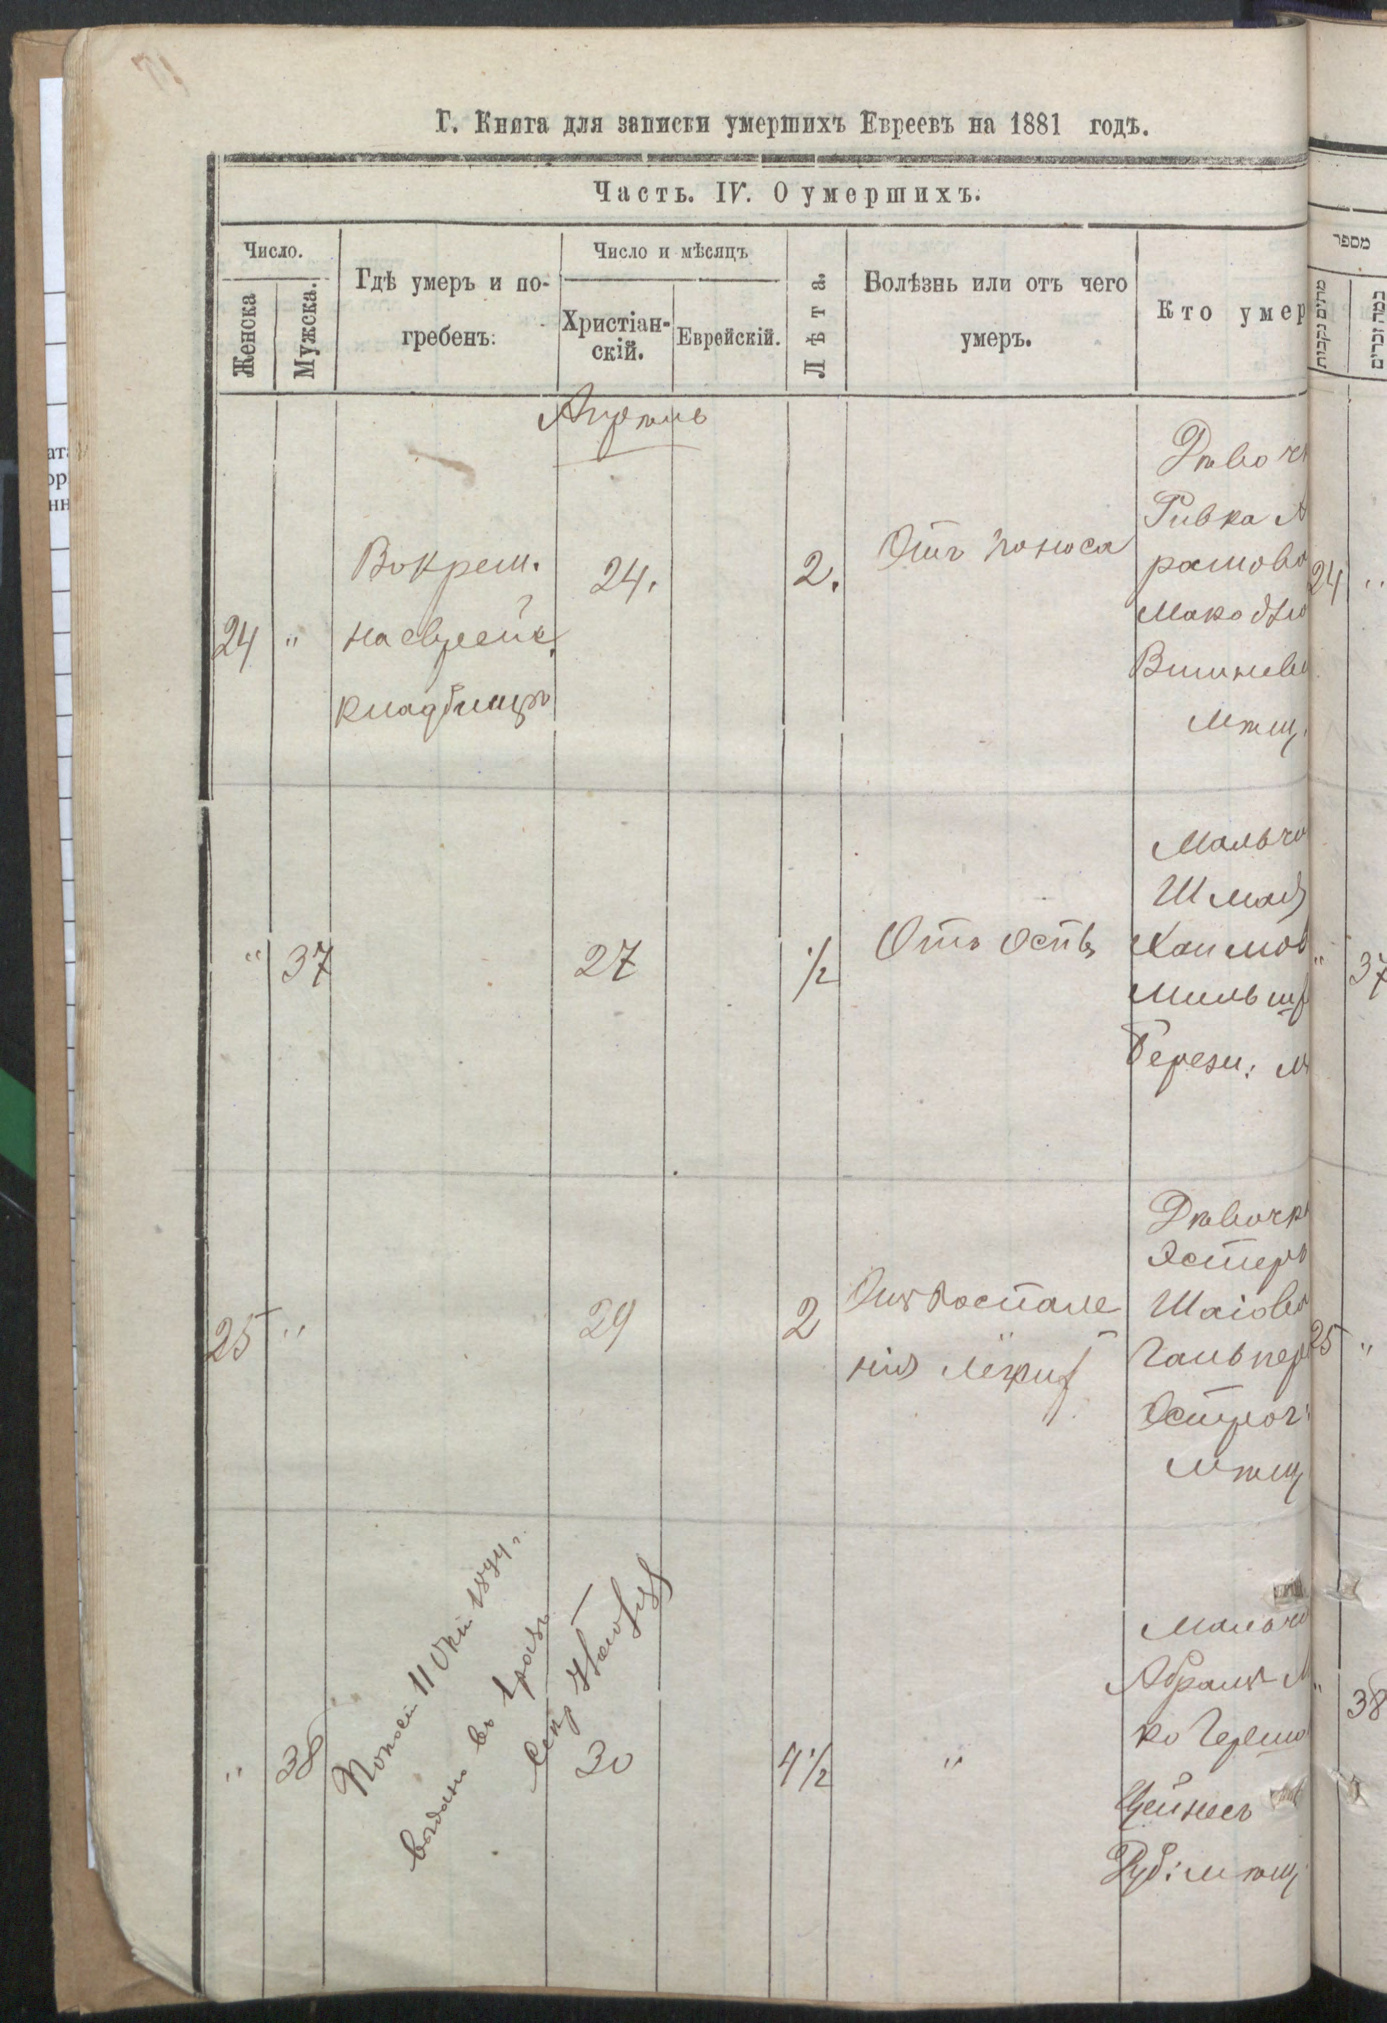 Г. Книга для записки умершихъ Евреевъ на 1881 годъ.
Часть. IV. О умершихъ.
Число.
Женска
Мужска.
Гдѣ умеръ и по-
гребенъ:
Число и мѣсяцъ
Христіан-
скій.
Еврейскій.
Лѣта.
Болѣзнь или отъ чего
умеръ.
Кто умер
מספר
מתים נקבות
כמה זכרים
Апрѣль
24
"
Вокрем.
на еврейс.
кладбищѣ
24.
2.
Отъ поноса
Дѣвоч
Ривка А
рамова
Вишневе
мѣщ.
24
"
"
37
27
1/2
Отъ оспы
Мальчи
Шмая
Хаимов
Мильш
Берези: м
"
37
25
"
29
2
Отъ воспале
нія
Дѣвочк
Эстеръ
Шаіова
Гальпер
Острог
мѣщ
25
"
"
38
11 Окт 1894 г.
выдано въ
30
4 1/2
"
Мальчи
Абрамъ М
ко Герш
Цейнесъ
Дуб: мѣщ
"
38